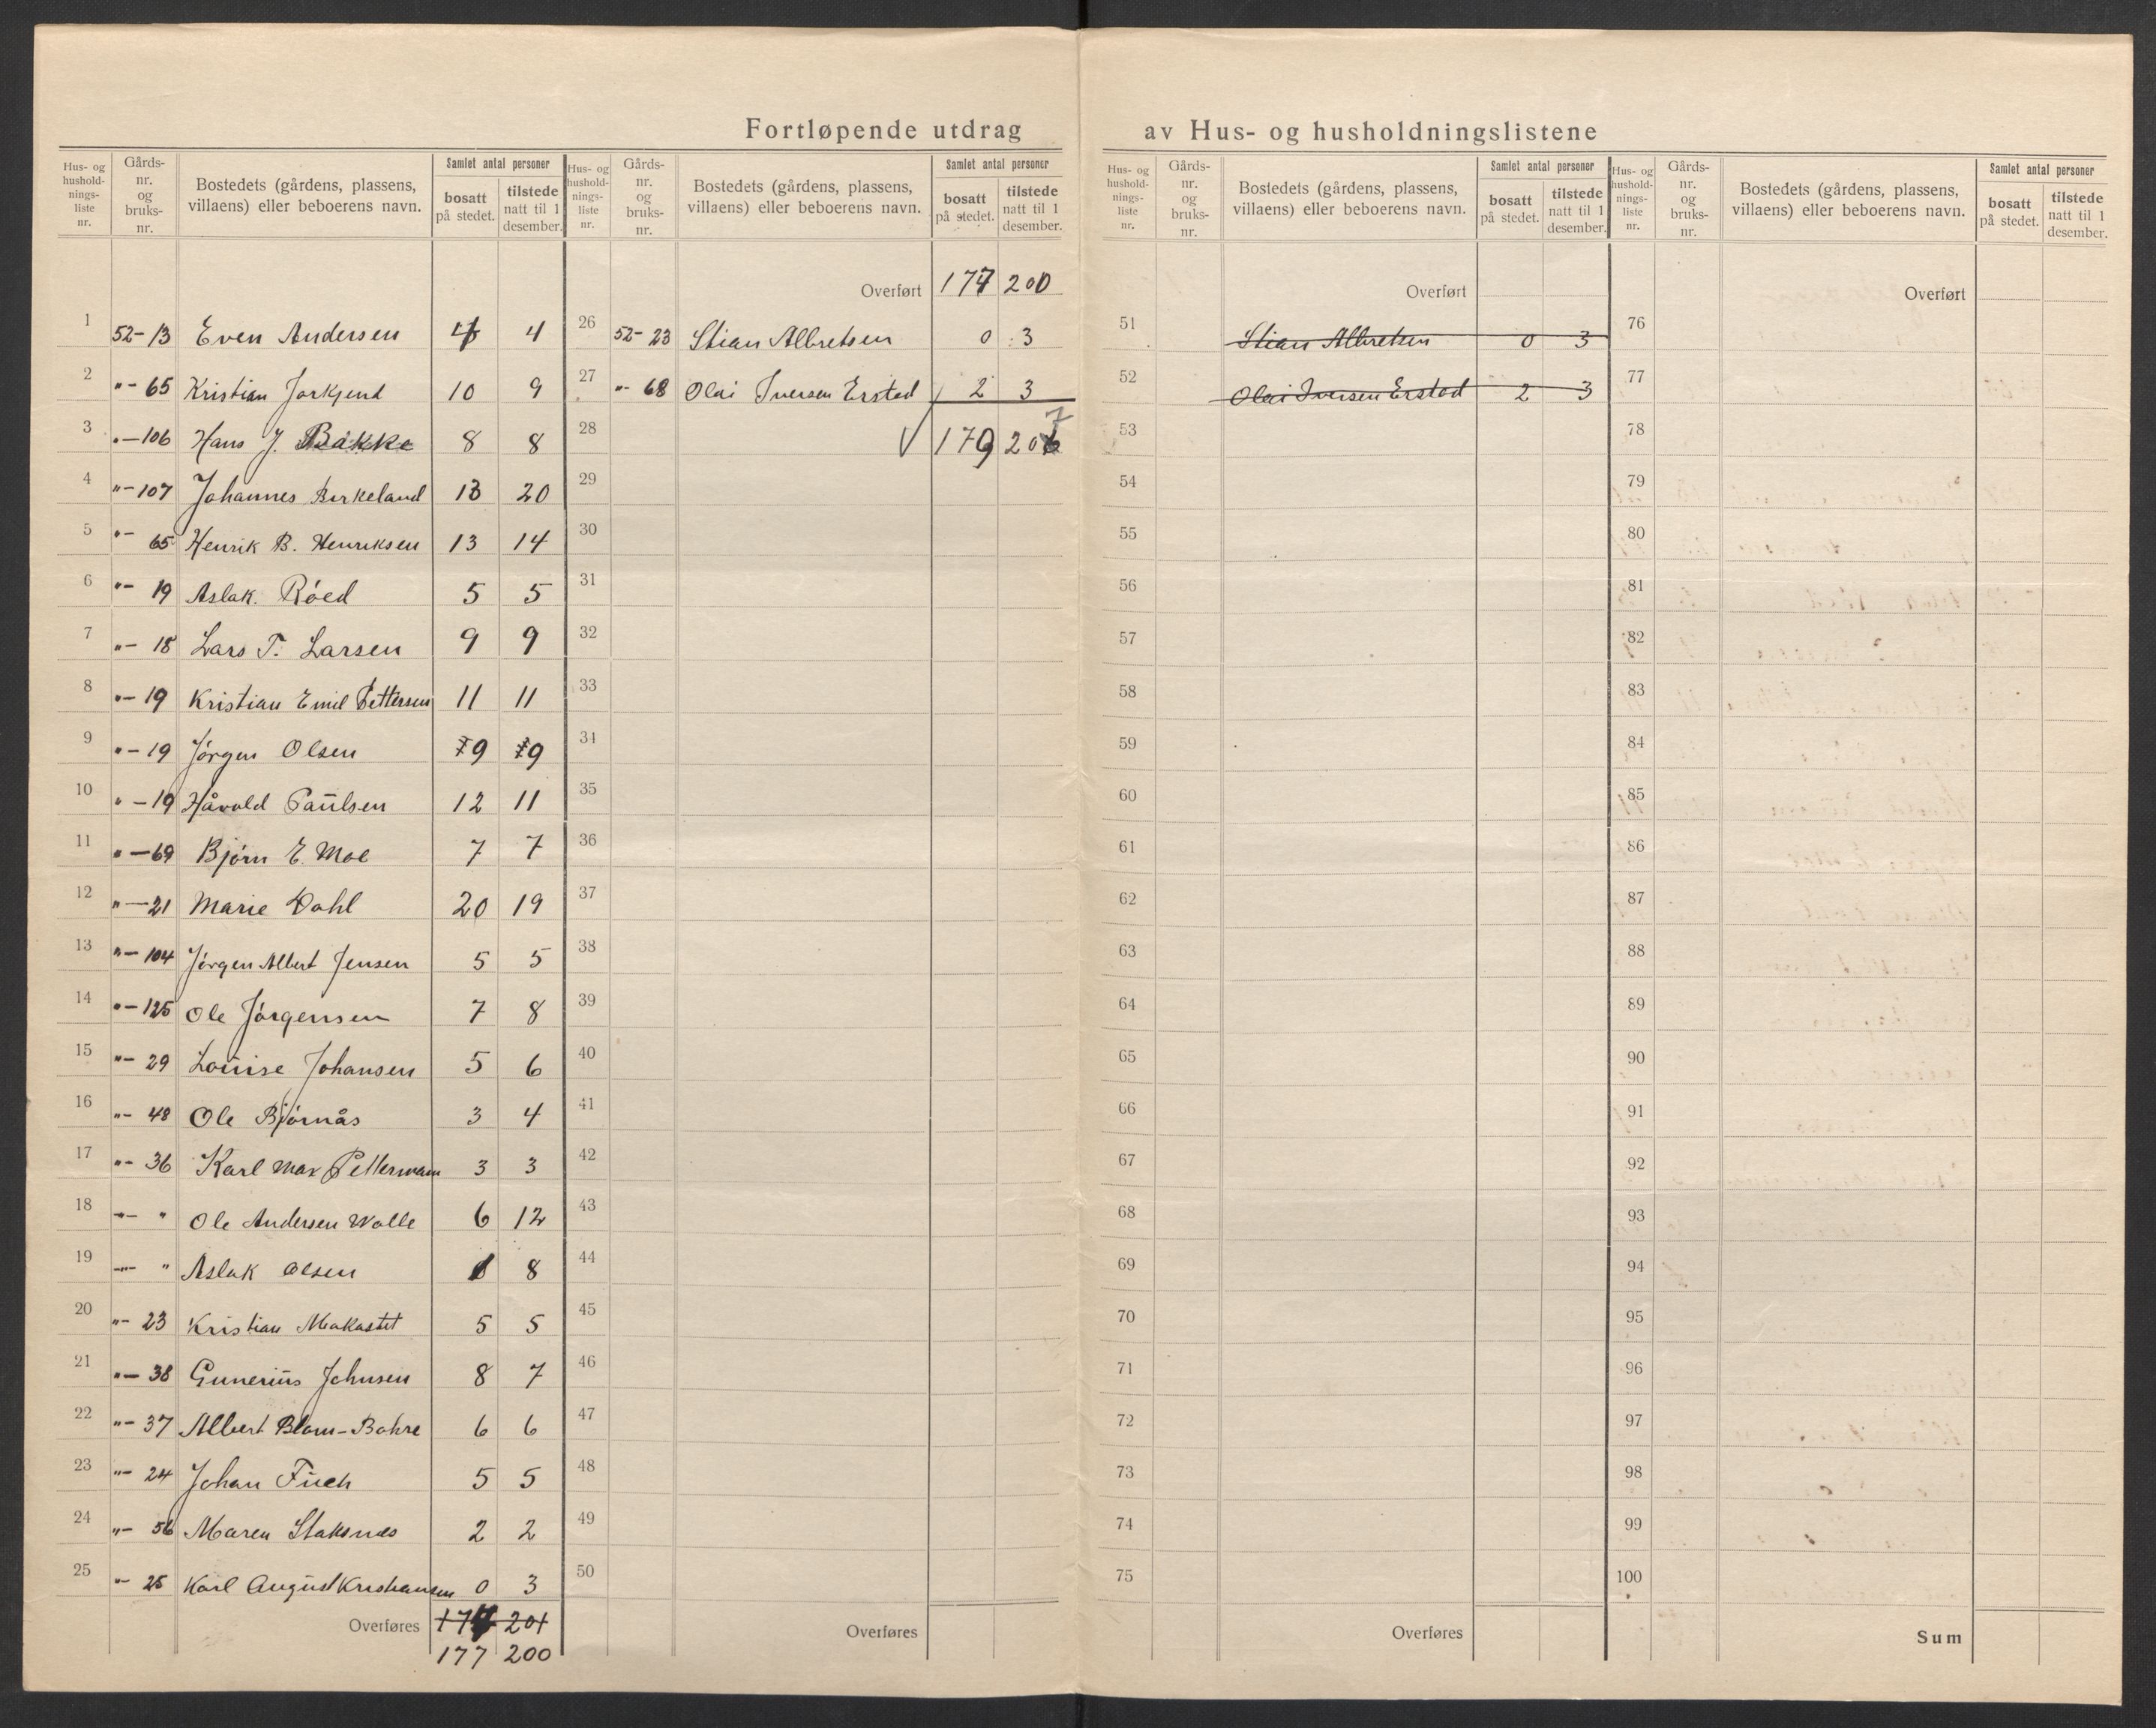 Fortløpende utdrag av Hus- og husholdningslistene
Hus- og husholdnings- liste nr. | Gårds- nr. og bruks- nr. | Bostedets (gårdens, plassens, villaens) eller beboerens navn. | Samlet antal personer | bosatt på stedet. | tilstede natt til 1 desember.
1 52-13 Even Andersen 4
2 "- 65 Kristian Jorkjend 10 9
3 "-106 Hans J. Bakke 8 8
4 "-107 Johannes Birkeland 13 20
5 "- 65 Henrik B. Henriksen 13 14
6 "- 19 Aslak. Røed 5 5
7 "- 18 Lars T. Larsen 9 9
8 "- 19 Kristian Emil Pettersen 11 11
9 "- 19 Jørgen Olsen 7 9 7 9
10 "- 19 Håvald Paulsen 12 11
11 "- 69 Bjørn E. Moe 7 7
12 "- 21 Marie Dahl 20 19
13 "- 104 Jørgen Albert Jensen 5 5
14 "- 125 Ole Jørgensen 7 8
15 "- 29 Louise Johansen 5 6
16 "- 48 Ole Bjørnås 3 4
17 "- 36 Karl Max Pettermann 3 3
18 "- " Ole Andersen Wolle 6 12
19 "- " Aslak Olsen 8
20 "- 23 Kristian 5 5
21 "- 38 Gunerius Johnsen 8 7
22 "- 37 Albert Blom-Bakke 6 6
23 "- 24 Johan Fuch 5 5
24 "- 56 Maren Staksnes 2 2
25 "- 25 Karl August Kristiansen 0 3
Overføres 201
177 200
Hus- og husholdnings- liste nr. | Gårds- nr. og bruks- nr. | Bostedets (gårdens, plassens, villaens) eller beboerens navn. | Samlet antal personer | bosatt på stedet. | tilstede natt til 1 desember.
Overført 177 200
26 52-23 Stian Albretsen 0 3
27 "- 68 Olai Iversen Erstad 2 3
28 √ 179 206 7
29
30
31
32
33
34
35
36
37
38
39
40
41
42
43
44
45
46
47
48
49
50
Overføres
Hus- og husholdnings- liste nr. | Gårds- nr. og bruks- nr. | Bostedets (gårdens, plassens, villaens) eller beboerens navn. | Samlet antal personer | bosatt på stedet. | tilstede natt til 1 desember.
Overført
51 Stian Albretsen 0 3
52 Olai Iversen Erstad 2 3
53
54
55
56
57
58
59
60
61
62
63
64
65
66
67
68
69
70
71
72
73
74
75
Overføres
Hus- og husholdnings- liste nr. | Gårds- nr. og bruks- nr. | Bostedets (gårdens, plassens, villaens) eller beboerens navn. | Samlet antal personer | bosatt på stedet. | tilstede natt til 1 desember.
Overført
76
77
78
79
80
81
82
83
84
85
86
87
88
89
90
91
92
93
94
95
96
97
98
99
100
Sum